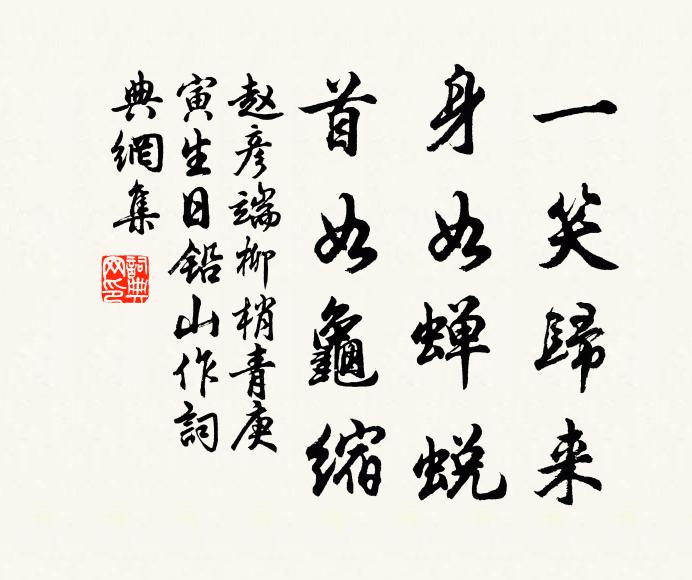 一笑歸来
身如蝉蜕
首如龜縮
赵彦端柳梢青庚
寅生日鉛山作詞
典網集
詞典
网印